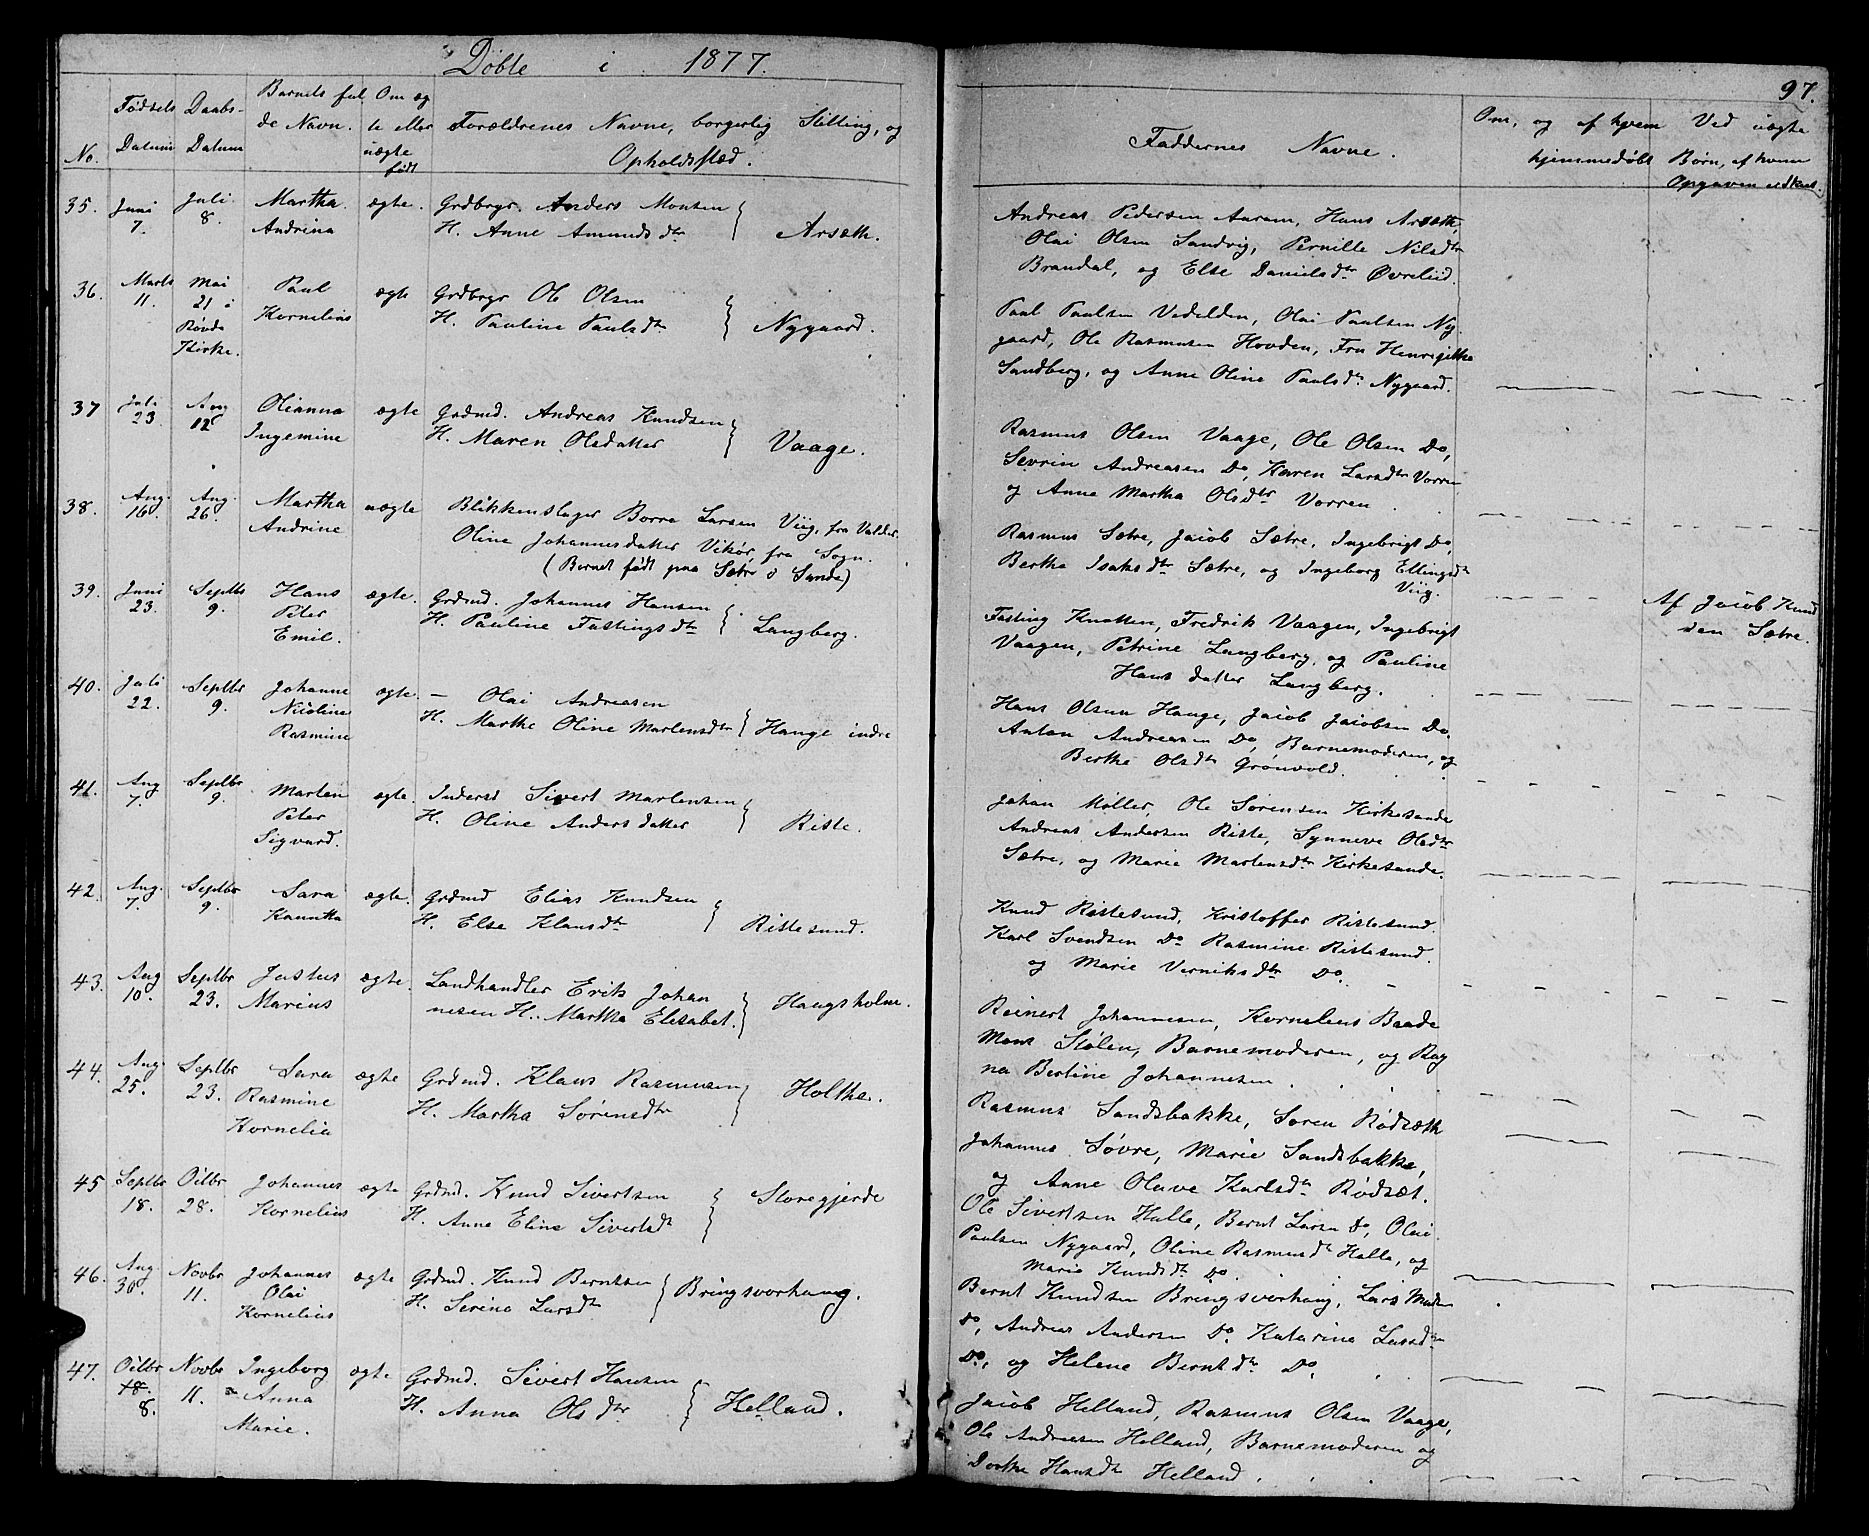 Døbte i 1877.
97.
No.
Fødsels
Datum
Daabs-
Datum
Barnets ful
de Navn.
Om æg
te eller
uægte
født
Forældrenes Navne, borgerlig Stilling, og
Opholdssted.
Faddernes Navne.
Om, og af hvem
hjemmedøbt
Ved uægte
Børn, af hvem
Opgaven
35. Juni 7. Juli 8. Martha ægte. Grdbrgr. Anders Monsen
Andrina H. Anne Amunds dtr Arsæth.
Andreas Pedersen Auram, Hans Arsæth,
Olai Olsen Sandvig, Pernille Nilsdtr
Brandal, og Else Danielsdtr Øvreliid.
36. Marts 11. Mai 21 i Paul ægte Grdbrgr Ole Olsen
Røvde Kirke. Kornelius H. Pauline Paulsdtr Nygaard.
Paul Paulsen Vedelden, Olai Paulsen Ny
gaard, Ole Rasmusen Hovden, Fru Henrigikke
Sandberg, og Anne Oline Paulsdtr Nygaard.
37 Juli 23. Aug 12 Olianna ægte Grdmd. Andreas Knudsen
Ingemine H. Maren Olsdatter Vaage.
Rasmus Olsen Vaage, Ole Olsen Do,
Sevrin Andreasen Do, Karen Larsdtr Vorren
og Anne Martha Olsdtr Vorren
38. Aug. 16. Aug. 26. Martha uægte Blikkenslager Borre Larsen Viig, fra Valder.
Andrine Oline Johannesdatter Vikør, fra Sogn.
(Barnet født paa Sætre i Sande)
Rasmus Sætre, Jacob Sætre, Ingebrigt Do,
Berthe Isaksdtr Sætre, og Ingeborg Ellingsdtr
Viig.
Af Jacob Knud
sen Sætre.
39. Juni 23. Septbr 9. Hans ægte. Grdmd. Johannes Hansen
Peter H. Pauline Fastingsdtr Langberg.
Emil.
Fasting Knotten, Fredrik Vaagen, Ingebrigt
Vaagen, Petrine Langberg, og Pauline
Hans datter Langberg.
40. Juli 22. Septbr 9. Johanne ægte. — Olai Andreasen
Nicoline H. Marthe Oline Martensdtr Hauge indre
Rasmine
Hans Olsen Hauge, Jacob Jacobsen Do.
Anton Andreasen Do, Barnemoderen, og
Berthe Olsdtr Grønvold.
41. Aug 7. Septbr 9. Marten ægte. Inderst Sivert Martensen
Peter H. Oline Anders datter Riste.
Sigvard.
Johan Møller, Ole Sørensen Kirkesande
Andreas Andersen Riste, Synneve Olsdtr
Sætre, og Marie Martensdtr Kirkesande.
42. Aug. 7. Septbr 9. Sara ægte. Grdmd Elias Knudsen
Kanutta H. Else Klausdtr Ristesund.
Knud Ristesund, Kristoffer Ristesund.
Karl Svendsen Do Rasmine Ristesund.
og Marie Verniksdtr Do.
43. Aug 10. Septbr 23. Justus ægte. Landhandler Erik Johan
Marius nesen H. Martha Elesabet. Haugsholm.
Reinert Johannesen, Kornelius Baade
Mons Stølen, Barnemoderen, og Rag
na Bertine Johannesen
44. Aug 25. Septbr 23. Sara ægte Grdmd. Klaus Rasmusen
Rasmine H. Martha Sørensdtr Holthe.
Kornelia
Rasmus Sandsbakke, Søren Rødsæth
Johannes Søvre, Marie Sandsbakke,
og Anne Oluve Karlsdtr Rødsæt.
45 Septbr 18. Octbr 28. Johannes ægte Grdmd. Knud Sivertsen
Kornelius H. Anne Eline Sivertsdtr Storegjerde
Ole Sivertsen Halle, Bernt Larsen Do, Olai
Paulsen Nygaard, Oline Rasmusdtr Halle, og
Marie Knudsdtr Do.
46. Aug 30. Novbr 11. Johannes ægte Grdmd. Knud Berntsen
Olai H. Serine Larsdtr Bringsvorhaug.
Kornelius
Bernt Knudsen Bringsvorhaug, Lars Madsen
Do, Andreas Andersen Do. Katarina Larsdtr
Do, og Helene Berntsdtr Do.
47. Octbr 18. 8. Novbr 11. Ingeborg ægte Grdmd. Sivert Hansen
Anna H. Anna Olsdtr Helland.
Marie.
Jacob Helland, Rasmus Olsen Vaage,
Ole Andreasen Helland, Barnemoderen og
Dorthe Hansdtr Helland.